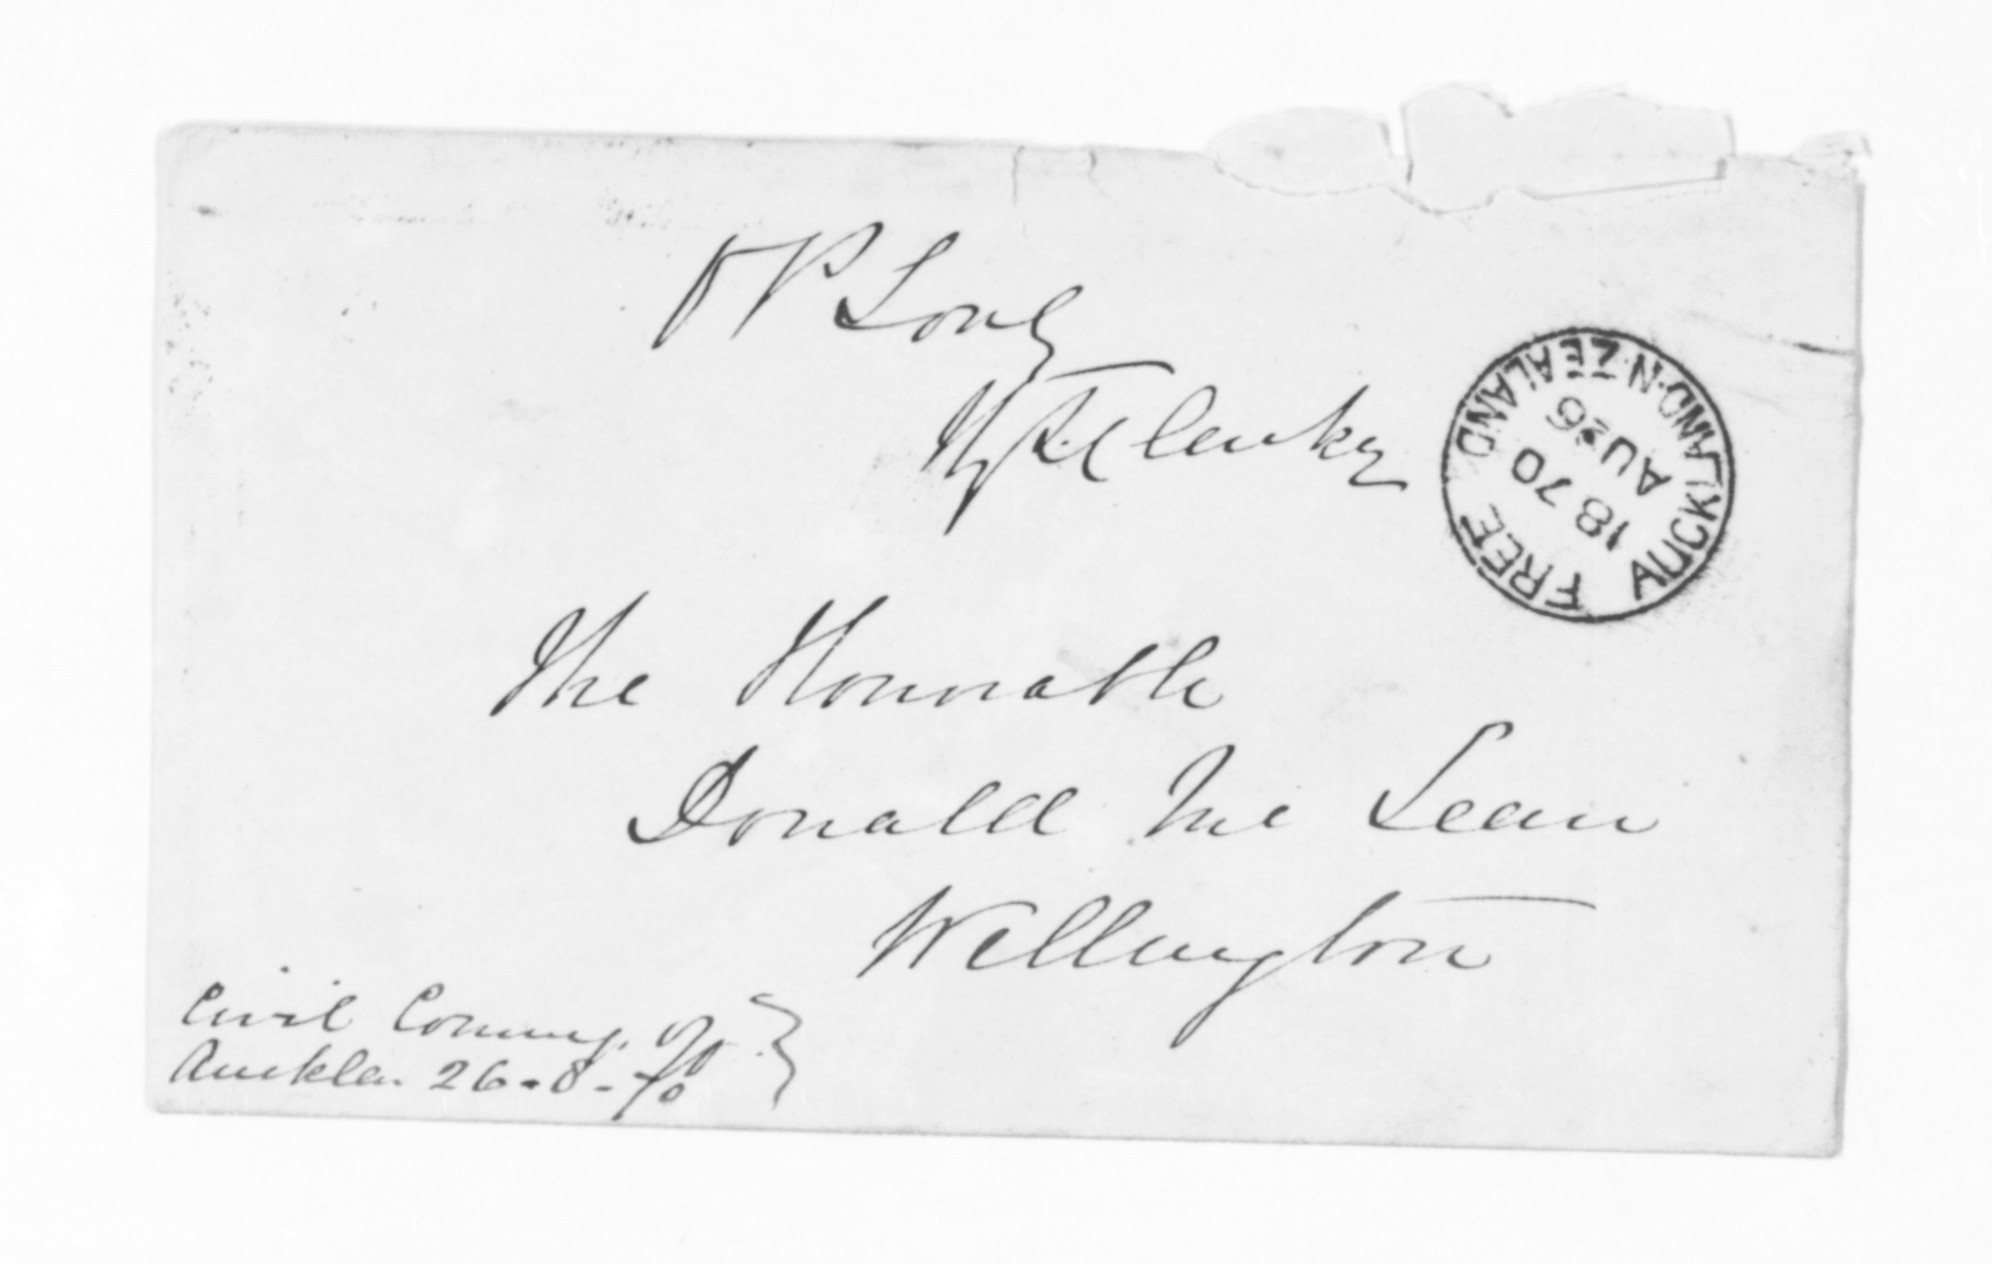 P Long
The Honorable
Donald Mc Lean
Wellington
Civil Commrs. Of
Aucklan 26-8-70
FREE AUCKLAND·N·ZEALAND
1870
AU 26